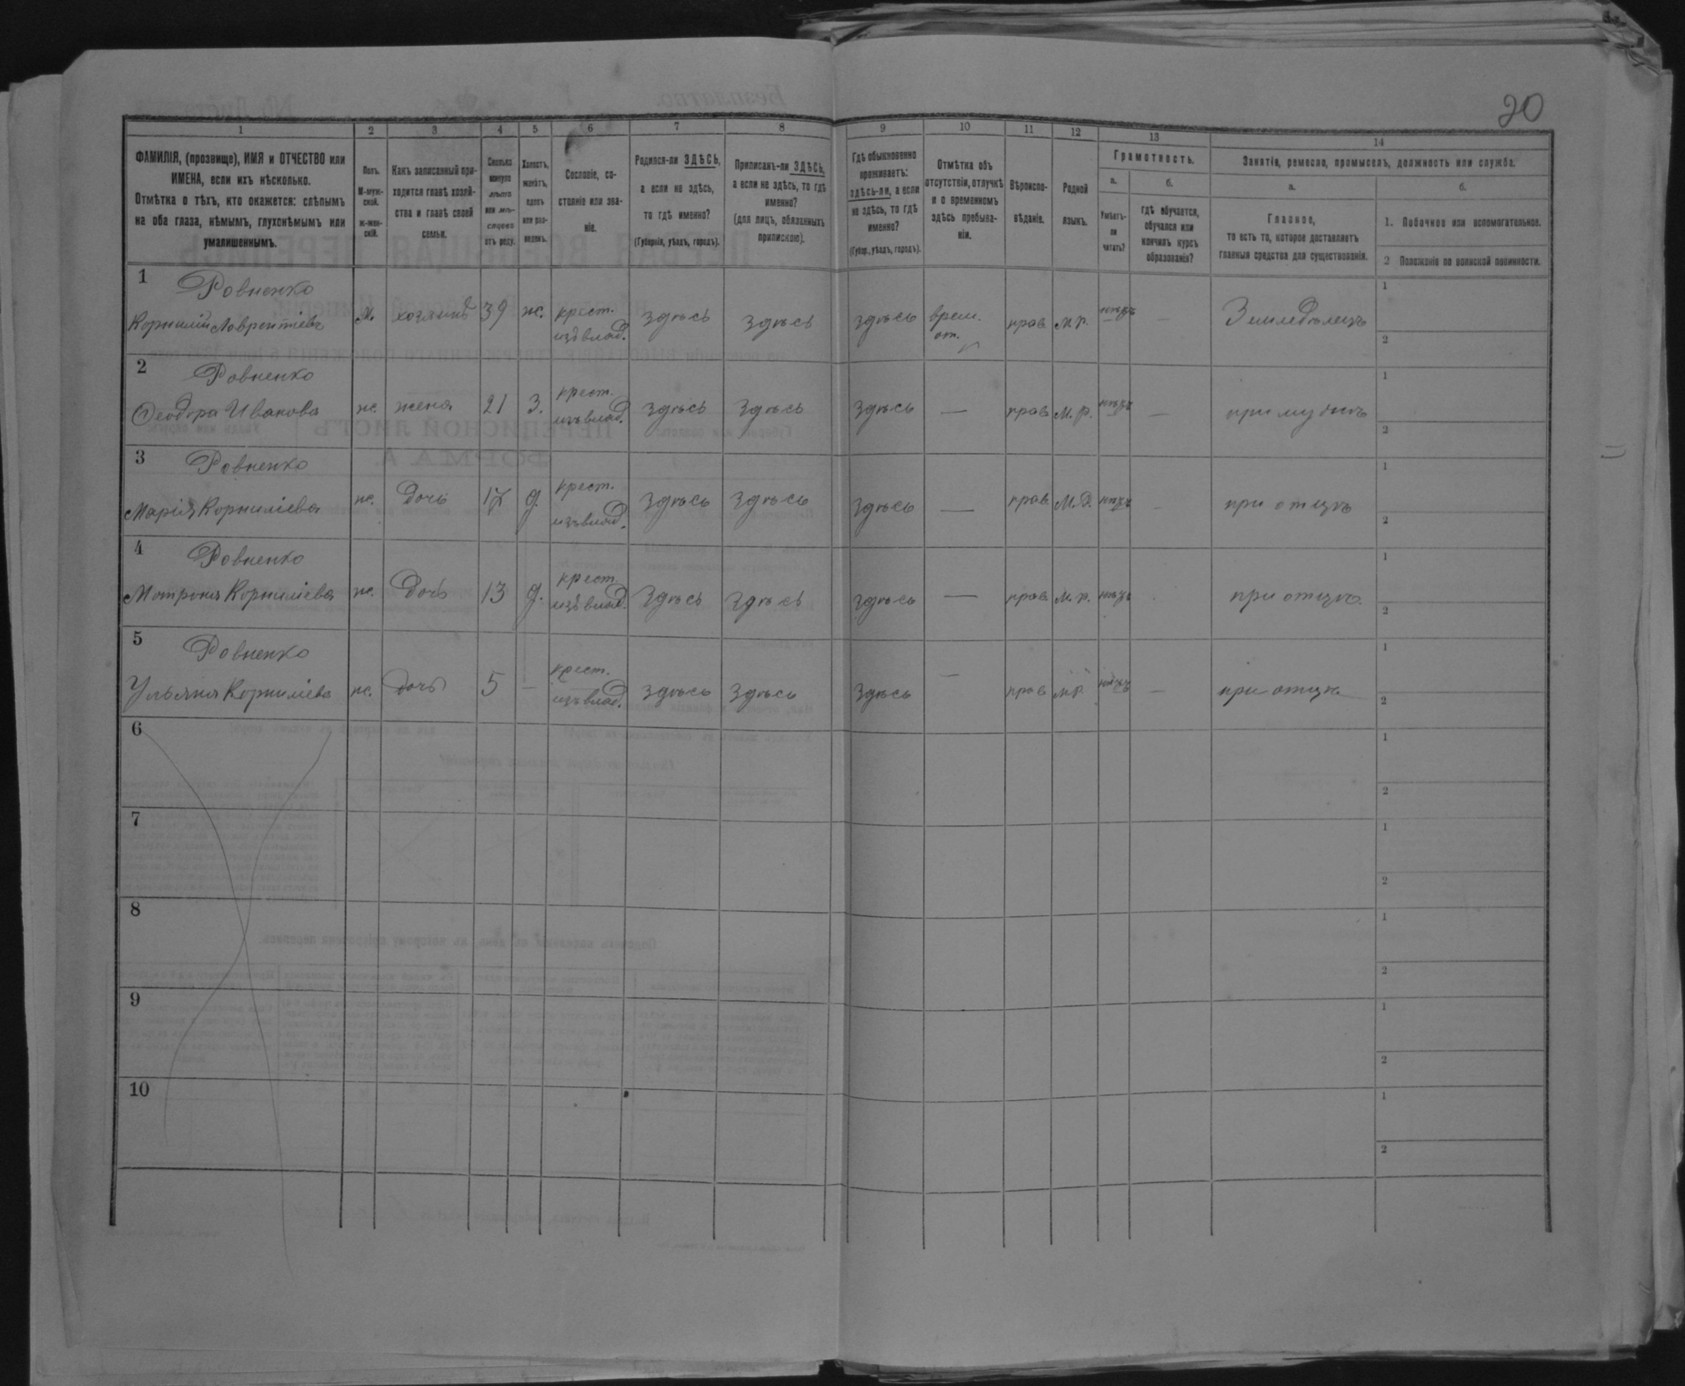 20
1 2 3 4 5 6 7 8 9 10 11 12 13 14
ФАМИЛІЯ, (прозвище), ИМЯ и ОТЧЕСТВО или
ИМЕНА, если ихъ нѣсколько.
Отмѣтка о тѣхъ, кто окажется: слѣпымъ
на оба глаза, нѣмымъ, глухонѣмымъ или
умалишеннымъ.
Полъ.
М-муж-
ской.
ж-жен-
скій.
Какъ записанный при-
ходится главѣ хозяй-
ства и главѣ своей
семьи.
Сколько
минуло
лѣтъ
или мѣ-
сяцевъ
отъ роду.
Холостъ,
женатъ,
вдовъ
или раз-
веденъ.
Сословіе, со-
стояніе или зва-
ніе.
Родился-ли ЗДѢСЬ,
а если не здѣсь,
то гдѣ именно?
(Губернія, уѣздъ, городъ).
Приписанъ-ли ЗДѢСЬ,
а если не здѣсь, то гдѣ
именно?
(для лицъ, обязанныхъ
припискою).
Гдѣ обыкновенно
проживаетъ:
здѣсь-ли, а если
не здѣсь, то гдѣ
именно?
(Губер., уѣздъ, городъ).
Отмѣтка объ
отсутствіи, отлучкѣ
и о временномъ
здѣсь пребыва-
ніи.
Вѣроиспо-
вѣданіе.
Родной
языкъ.
Грамотность.
а.
Умѣетъ-
ли
читать?
б.
гдѣ обучается,
обучался или
кончилъ курсъ
образованія?
Занятіе, ремесло, промыселъ, должность или служба.
а.
Главное,
то есть то, которое доставляетъ
главныя средства для существованія.
б.
1. Побочное или вспомогательное.
2 Положеніе по воинской повинности.
1 Ровненко
Корнилій Лаврентіевъ м. хозяинъ 39 ж. крест. изъ влад. здѣсь здѣсь здѣсь врем. от. прав. м.р. Земледѣлецъ
2 Ровненко
Феодора Иванова ж. жена 21 з. крест. изъ влад. здѣсь здѣсь здѣсь — прав. м.р. — при мужѣ
3 Ровненко
Марія Корниліева ж. дочь 17 д. крест. изъ влад. здѣсь здѣсь здѣсь — прав. м.р. при отцѣ
4 Ровненко
Мотрона Корниліева ж. дочь 13 д. крест. изъ влад. здѣсь здѣсь здѣсь — прав. м.р. при отцѣ
5 Ровненко
Ульяна Корниліева ж. дочь 5 — крест. изъ влад. здѣсь здѣсь здѣсь — прав. м.р. — при отцѣ
6
7
8
9
10
1
2
1
2
1
2
1
2
1
2
1
2
1
2
1
2
1
2
1
2